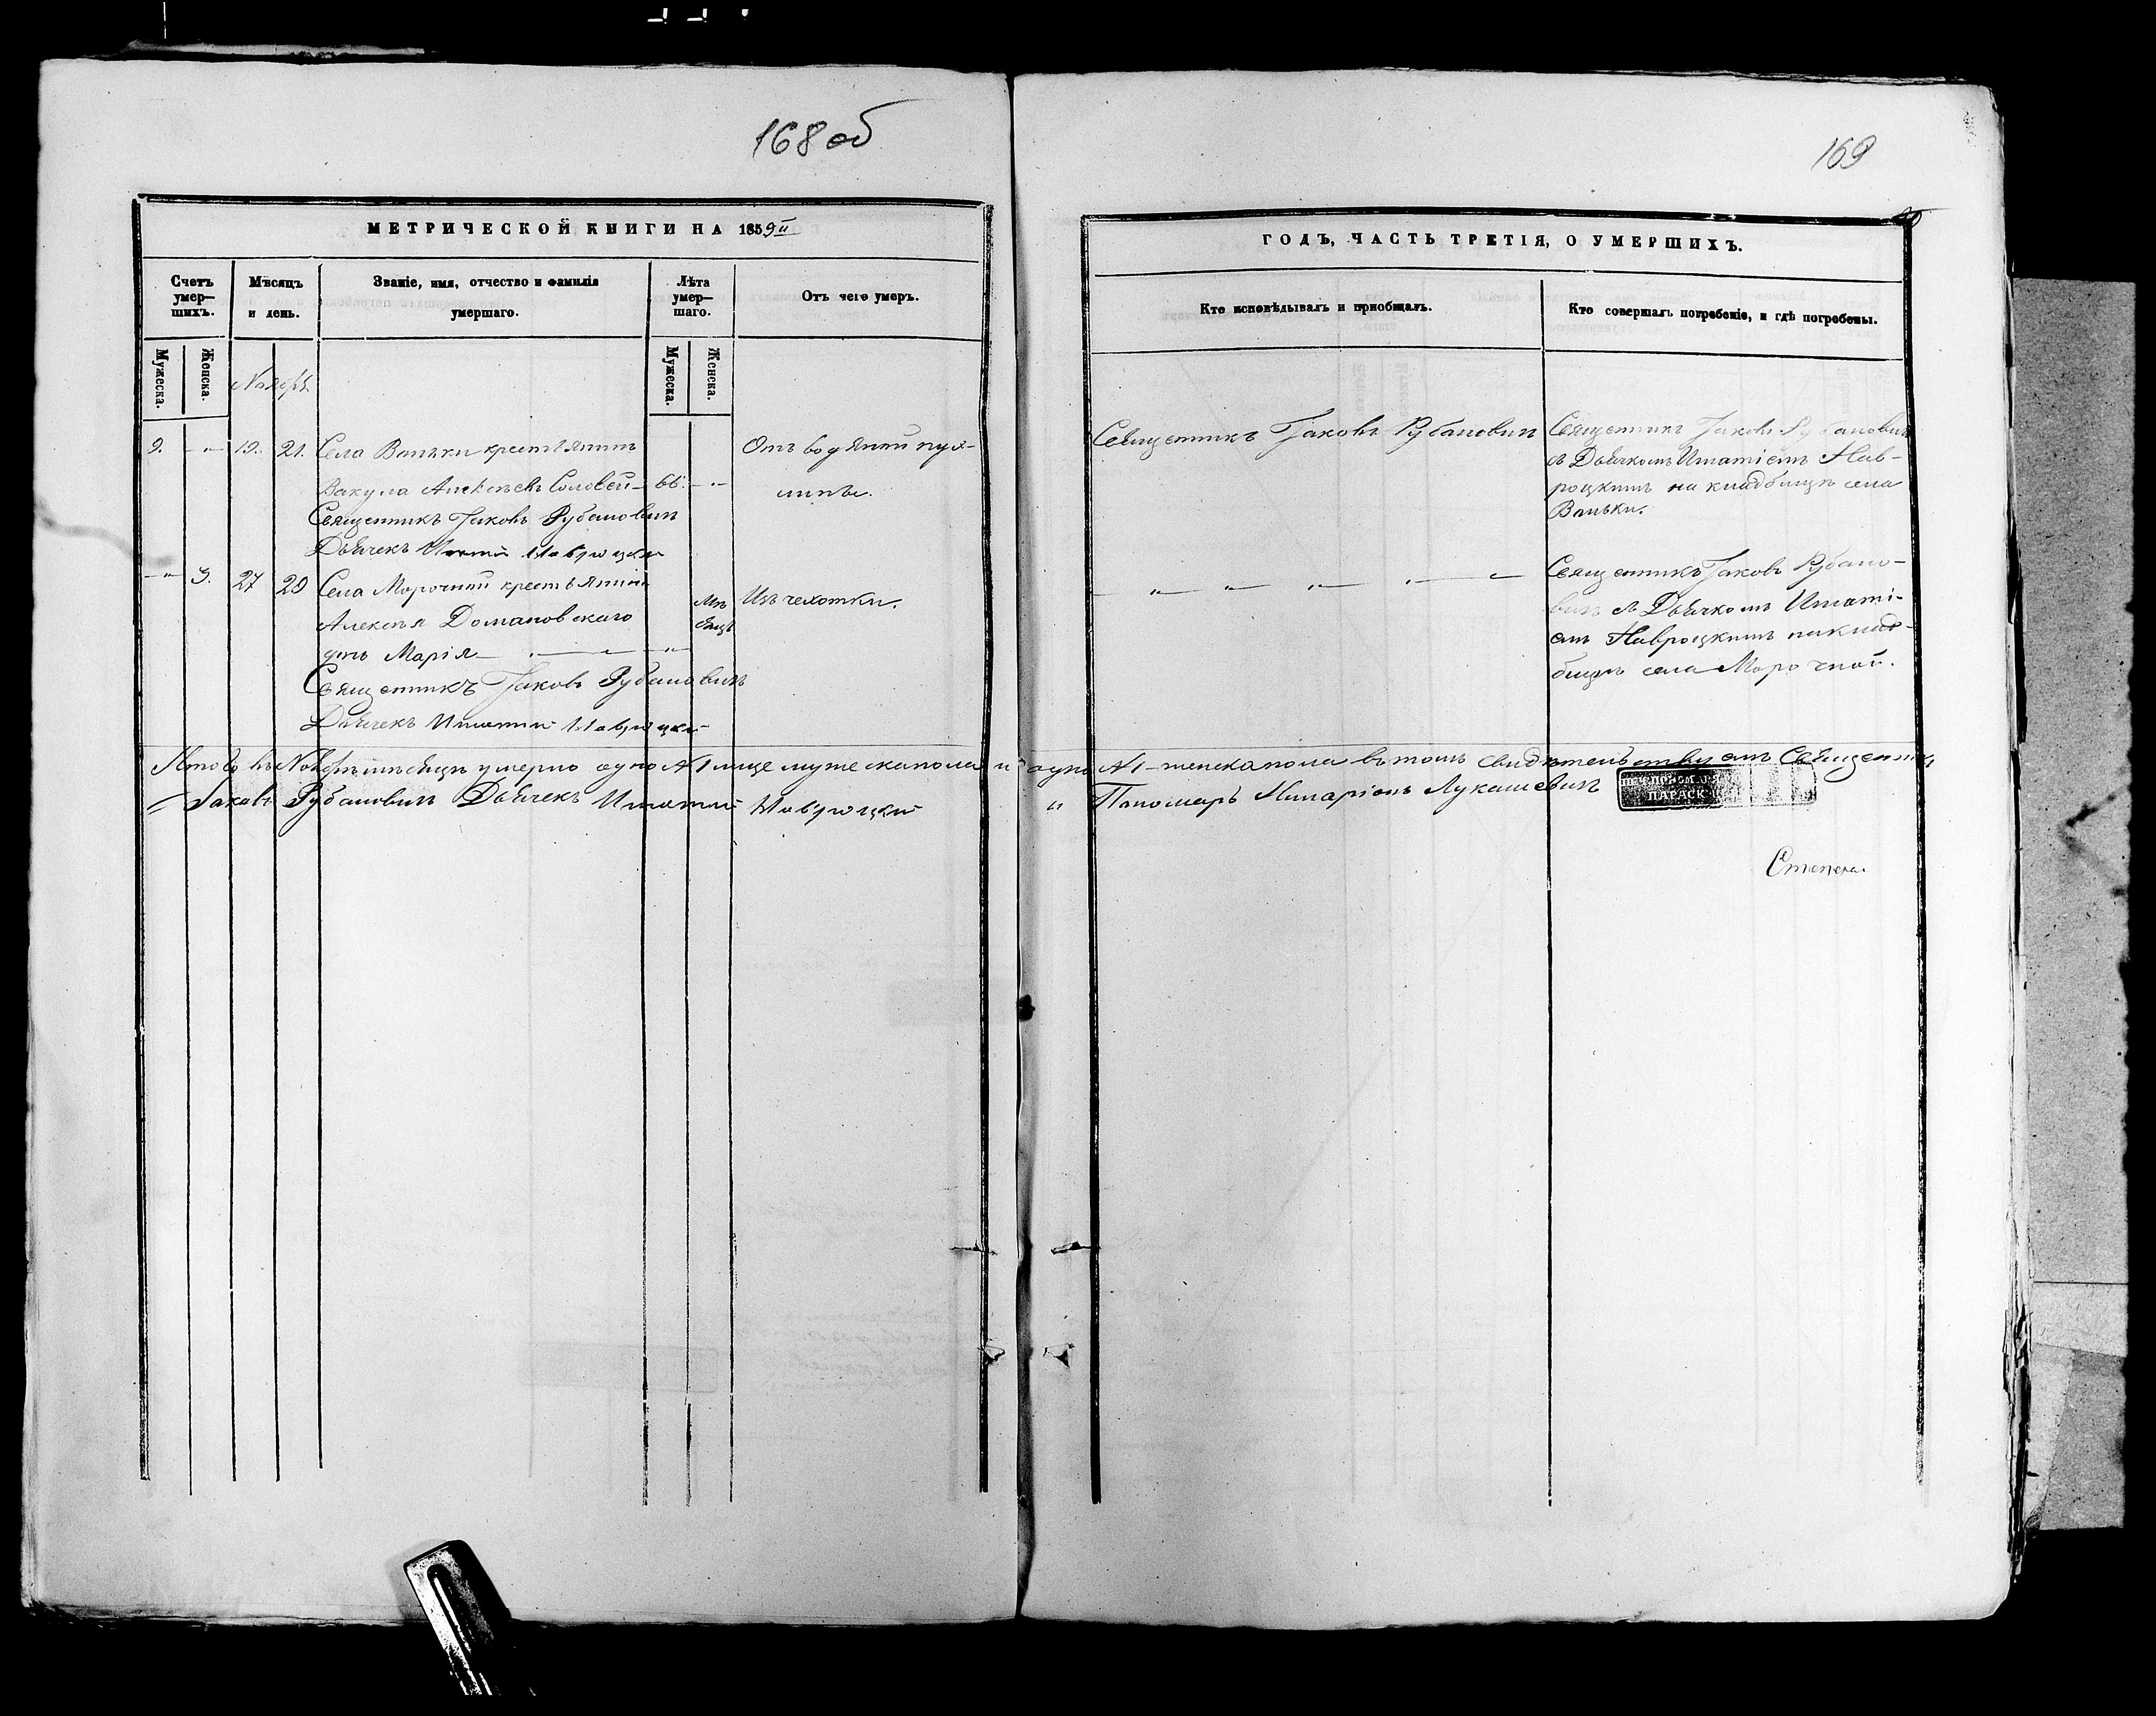 168 об
169
МЕТРИЧЕСКОЙ КНИГИ НА 1859й
ГОДЪ, ЧАСТЬ ТРЕТІЯ, О УМЕРШИХЪ.
Счетъ умер-шихъ.
Мѣсяцъ и день.
Званіе, имя, отчество и фамилія умершаго.
Лѣта умер-шаго.
Отъ чего умеръ.
Кто исповѣдывалъ и приобщалъ.
Кто совершалъ погребеніе, и гдѣ погребены.
Мужеска.
Женска.
Мужеска.
Женска.
Ноябрь.
9. - " - 19. 21. Села Ваньки крестьянинъ
Вакула Алексѣевъ Соловей - 66. - " -
Священникъ Іаковъ Рубановичъ
Дьячекъ Игнатій Навроцкій
Отъ водяной пух-
лины.
Священникъ Іаковъ Рубановичъ
Священникъ Іаковъ Рубановичъ
съ Дьячкомъ Игнатіемъ Нав-
роцкимъ на кладбищѣ села
Ваньки.
- " - 3. 27 29 Села Морочной крестьянина
Алексѣя Домановскаго
дочь Марія
Мѣ-
сяцъ
Изъ чехотки.
Священникъ Іаковъ Рубановичъ
Дьячекъ Игнатій Навроцкій
Священникъ Іаковъ Рубано-
вичъ съ Дьячкомъ Игнаті-
емъ Навроцкимъ на клад-
бищѣ села Морочной.
Итого въ Ноябрѣ мѣсяцѣ умерло одно № 1 лице мужеска пола и одно № 1 - женска пола въ томъ свидѣтельствуемъ Священникъ
Іаковъ Рубановичъ Дьячекъ Игнатій Навроцкій
" Пономарь Иларіонъ Лукашевичъ
ПАРАСК